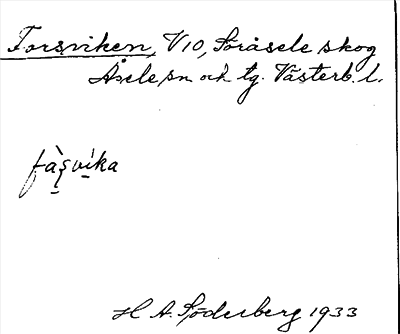 Forsviken, V10, Söråsele skog
Åsele sn och tg. Västerb. l.
fàʂvi̱ka
H. A. Söderberg 1933